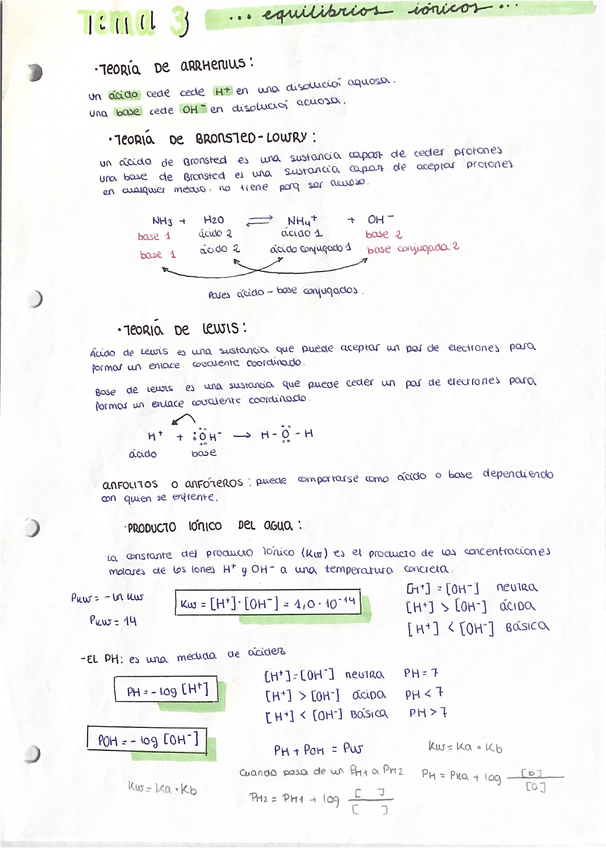 Tema 3 ... equilibrios iónicos ...
· TEORÍA DE ARRHENIUS:
un ácido cede cede H+ en una disolución acuosa.
una base cede OH- en disolución acuosa.
· TEORÍA DE BRONSTED-LOWRY:
un ácido de Bronsted es una sustancia capaz de ceder protones
una base de Bronsted es una sustancia capaz de aceptar protones
en cualquier medio, no tiene porq ser acuoso.
NH3 + H2O ⇌ NH4+ + OH-
base 1 ácido 2 ácido 1 base 2
base 1 ácido 2 ácido conjugado 1 base conjugada 2
Pares ácido-base conjugados.
· TEORÍA DE LEWIS:
Ácido de Lewis es una sustancia que puede aceptar un par de electrones para
formar un enlace covalente coordinado.
Base de Lewis es una sustancia que puede ceder un par de electrones para
formar un enlace covalente coordinado.
H+ + :ÖH- → H-Ö-H
ácido base
ANFOLITOS O ANFÓTEROS: puede comportarse como ácido o base dependiendo
con quien se enfrente.
· PRODUCTO IÓNICO DEL AGUA:
La constante del producto Iónico (Kw) es el producto de las concentraciones
molares de los iones H+ y OH- a una temperatura concreta.
PKw = - ln Kw
PKw = 14
Kw = [H+]·[OH-] = 1,0·10-14
[H+] = [OH-] neutra
[H+] > [OH-] ácida
[H+] < [OH-] BÁSICA
- EL PH: es una medida de acidez
PH = - log [H+]
[H+] = [OH-] neutra PH = 7
[H+] > [OH-] ácida PH < 7
[H+] < [OH-] BÁSICA PH > 7
POH = - log [OH-]
PH + POH = Pw
Kw = Ka · Kb
Kw = Ka · Kb
Cuando pasa de un PH1 a PH2
PH2 = PH1 + log [ ] / [ ]
PH = PKa + log [b] / [a]